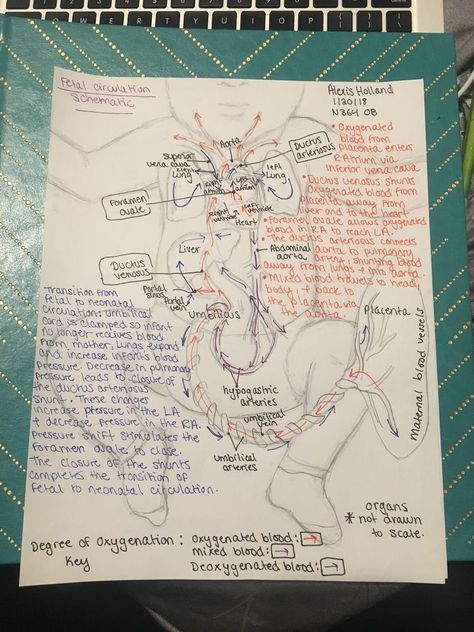 Fetal circulation
Schematic
Alexis Holland
1/20/18
N364 OB
• Oxygenated
blood from
placenta enters
R Atrium via
inferior vena cava
• Ductus venosus shunts
Oxygenated blood from
placenta away from
liver and to the heart
• Foramen ovale allows oxygenated
blood in RA to reach LA.
• The ductus arteriosus connects
aorta to pulmonary
artery, shunting blood
away from lungs + into aorta.
• Mixed blood travels to head,
body, + back to
the placenta via
the aorta.
Aorta
Superior
vena cava
Right
lung
left
lung
Ductus
arteriosus
Right
atrium
left
atrium
Foramen
ovale
Right
ventricle
left
ventricle
Heart
Liver
Abdominal
aorta
Ductus
venosus
Portal
sinus
Portal
vein
Umbilicus
Placenta
Maternal blood vessels
hypogastric
arteries
umbilical
vein
umbilical
arteries
Transition from
Fetal to neonatal
Circulation: Umbilical
Cord is clamped so infant
no longer recives blood
from mother, Lungs expand
and increase infants blood
pressure. Decrease in pulmonary
pressure leads to closure of
the ductus arteriosus
shunt. These changes
increase pressure in the LA
+ decrease pressure in the RA.
Pressure shift stimulates the
Foramen ovale to close.
The closure of the shunts
completes the transition of
Fetal to neonatal circulation.
* organs
not drawn
to scale.
Degree of Oxygenation: Oxygenated blood:
Key
mixed blood:
Deoxygenated blood: